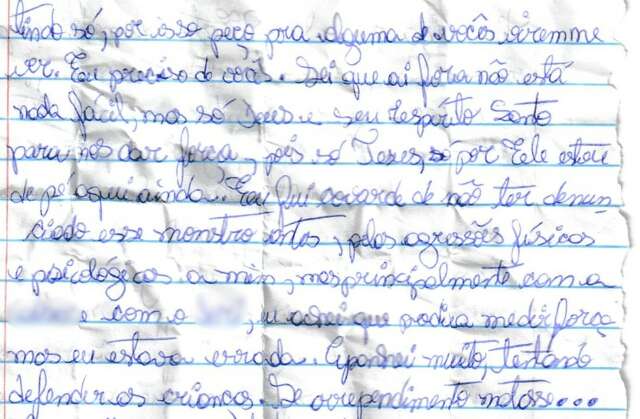 tindo só, por isso peço pra alguma de vocês virem me
ver. Eu preciso de vocês. Sei que ai fora não está
nada fácil, mas só Deus e seu Espírito Santo
para nos dar força, pois só Jesus, só por Ele estou
de pé aqui ainda. Eu fui covarde de não ter denun
ciado esse monstro antes, pelas agressões físicas
e psicológicas a mim, mas principalmente com a
e com o , eu achei que podia medir força
mas eu estava errada. Apanhei muito, tentando
defender as crianças. Se arrependimento matasse...